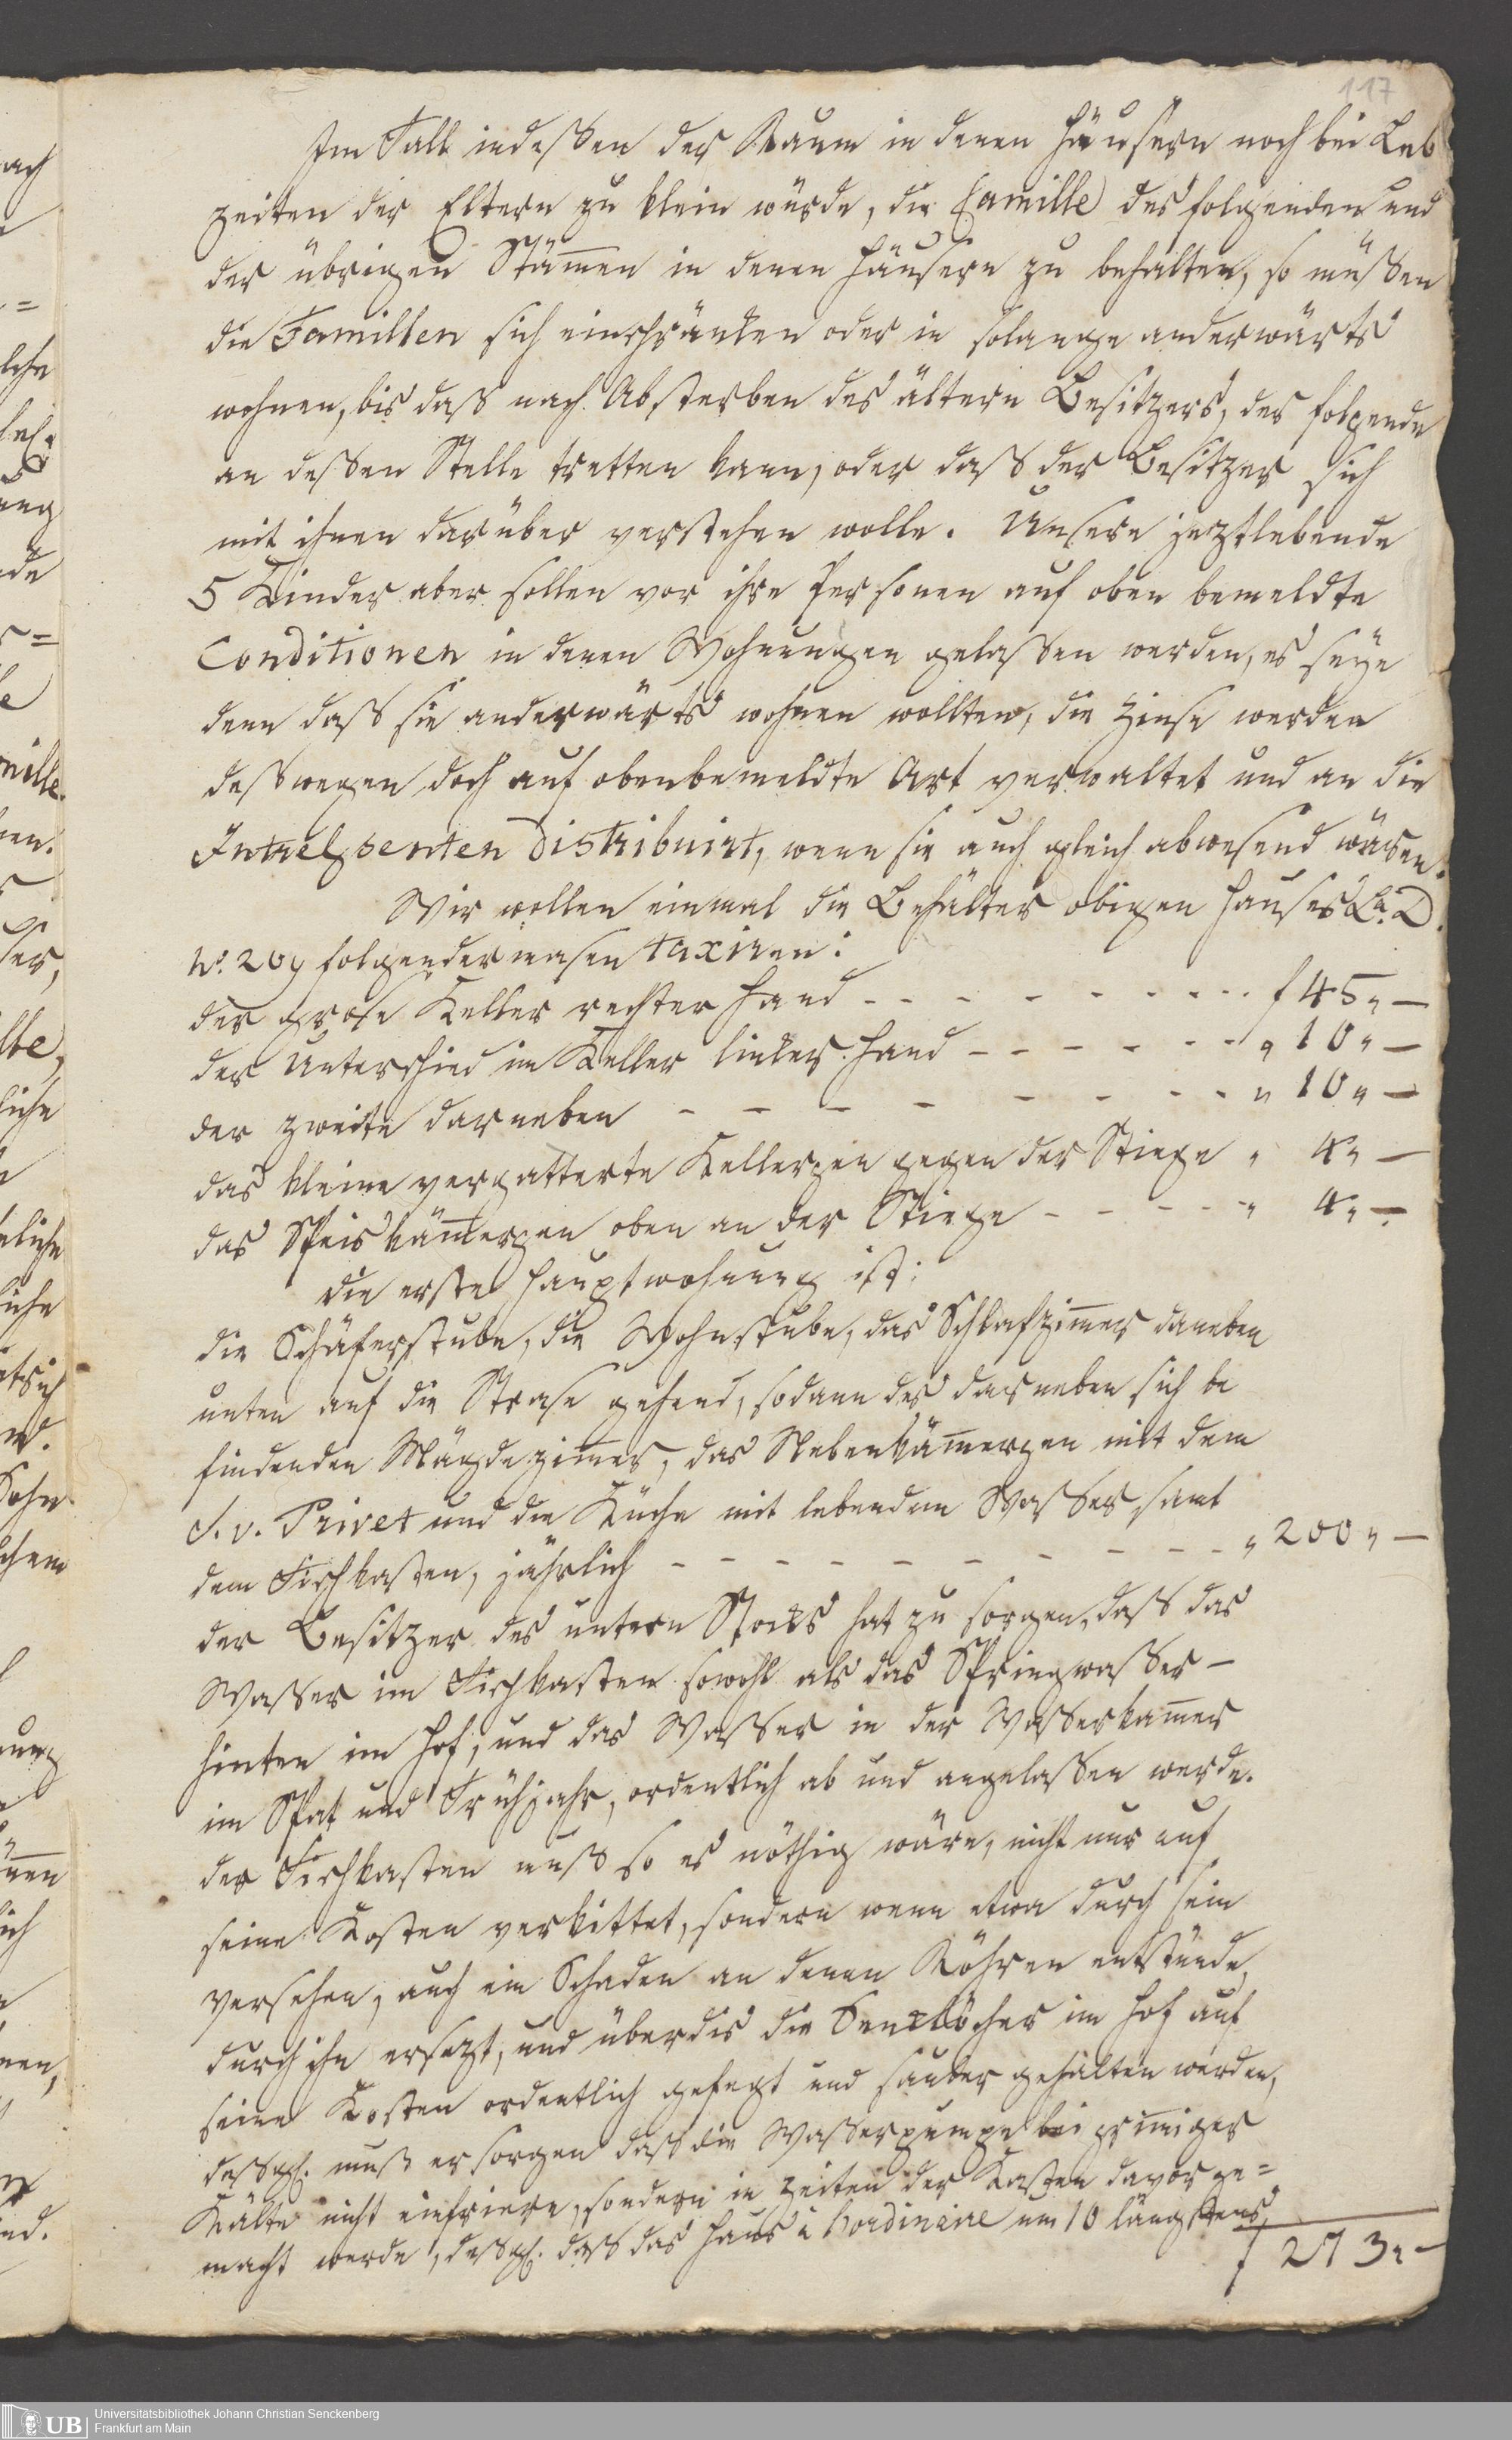 117
Im Fall indeßen der Raum in denen Häusern noch bei Leb
zeiten der Eltern zu klein würde, die Famille des folgenden und
der übrigen Stämen in denen Häusern zu behalten, so müßen
die Famillen sich einschränken oder in solange anderwärts
wohnen, bis daß nach Absterben des ältern Besitzers, der folgende
an deßen Stelle tretten kann, oder daß der Besitzer sich
mit ihnen darüber verstehen wolle. Unsere jeztlebende
5 Kinder aber sollen vor ihre Personen auf oben bemeldte
Conditionen in denen Wohnungen gelaßen werden, es seye
denn daß sie anderwärts wohnen wollten, die Zinse werden
deßwegen doch auf obenbemeldte Art verwaltet und an die
distribuirt, wenn sie auch gleich abwesend wären.
Wir wollen einmal die Behälter obigen Hauses La. D.
No. 209 folgendermasen taxiren:
der grose Keller rechter Hand - - - - - - - - - f 45 " —
der Unterschied im Keller linker Hand - - - - - - " 10 " —
der zweite darneben - - - - - - - - " 10 " —
das kleine vergatterte Kellergen gegen der Stiege " 4 " —
das Speiskämergen oben an der Stiege - - - - - " 4 " —
die erste Hauptwohnung ist:
die Schäferstube, die Wohnstube, das Schlafzimer daneben
unten auf die Strase gehend, sodann des darneben sich be
findenden Mägdezimer, das Nebenkämergen mit dem
S. v. Privet und die Küche mit lebendem Waßer, samt
dem Fischkasten, jährlich - - - - - - - - - - " 200 " —
der Besitzer des untern Stocks hat zu sorgen, daß das
Waßer im Fischkasten sowohl als das Springwaßer -
hinten im Hof, und das Waßer in der Waßerkamer
im Spat und Frühjahr, ordentlich ab und angelaßen werde.
der Fischkasten muß so es nöthig wäre, nicht nur auf
seine Kosten verkittet, sondern wenn etwa durch sein
versehen, auch ein Schaden an denen Röhren entstünde,
durch ihn ersezt, und überdis die Senklöcher im Hof auf
seine Kosten ordentlich gefegt und sauber gehalten werden,
deßgl. muß er sorgen daß die Waßerpumpe bei grimiger
Kälte nicht einfriere, sondern in Zeiten der Kasten davor ge=
macht werde, deßgl. daß das Haus a l'ordinaire um 10 längstens
f 273 " —